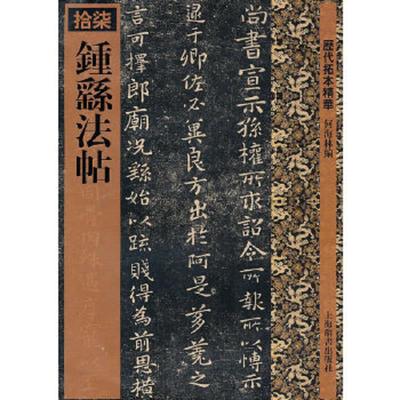 拾柒
鍾繇法帖
尚書宣示孫權所求詔令所報所以博示
逮于卿佐必冀良方出於阿是芻蕘之
言可擇郎廟況繇始以疏賤得為前恩橫
歷代拓本精華
何海林編
上海辭書出版社